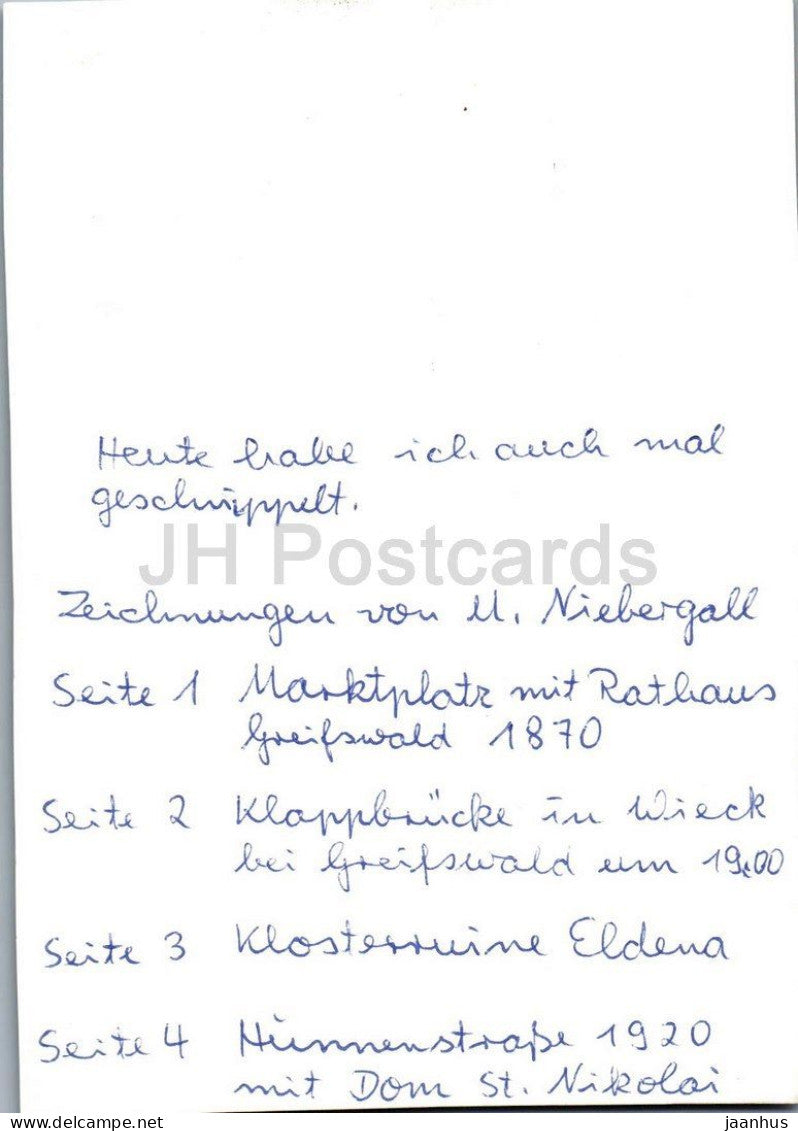 Heute habe ich auch mal
geschnippelt.
JH Postcards
Zeichnungen von M. Niebergall
Seite 1 Marktplatz mit Rathaus
Greifswald 1870
Seite 2 Klappbrücke in Wieck
bei Greifswald um 1900
Seite 3 Klosterruine Eldena
Seite 4 Hunnenstraße 1920
mit Dom St. Nikolai
delcampe.net
jaanhus